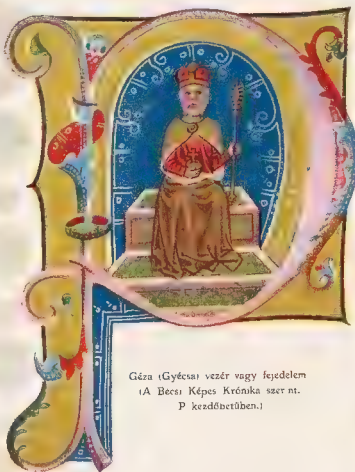 Géza (Gyécsa) vezér vagy fejedelem
(A Bécsi Képes Krónika szerint.
P kezdőbetűben.)